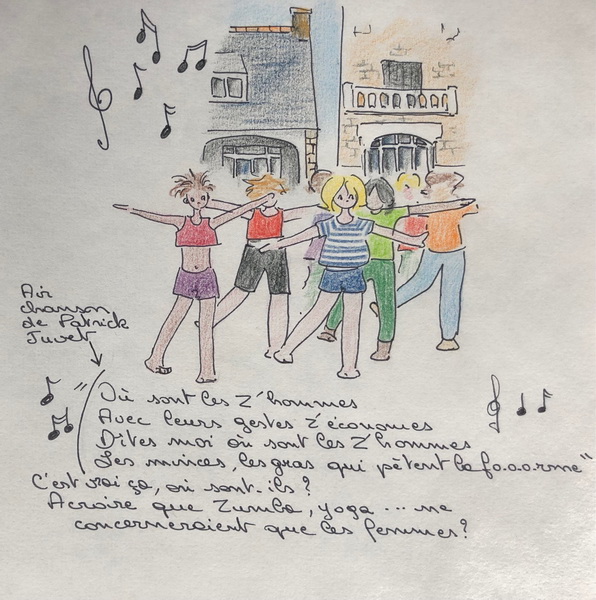 Air
chanson
de Patrick
Juvet
"Où sont les z'hommes
Avec leurs gestes z'économes
Dîtes moi où sont les z'hommes
Les minces, les gras qui pètent la fo.o.o.rme"
C'est vrai ça, où sont-ils ?
Acroire que Zumba, yoga ... ne
concerneraient que les femmes ?